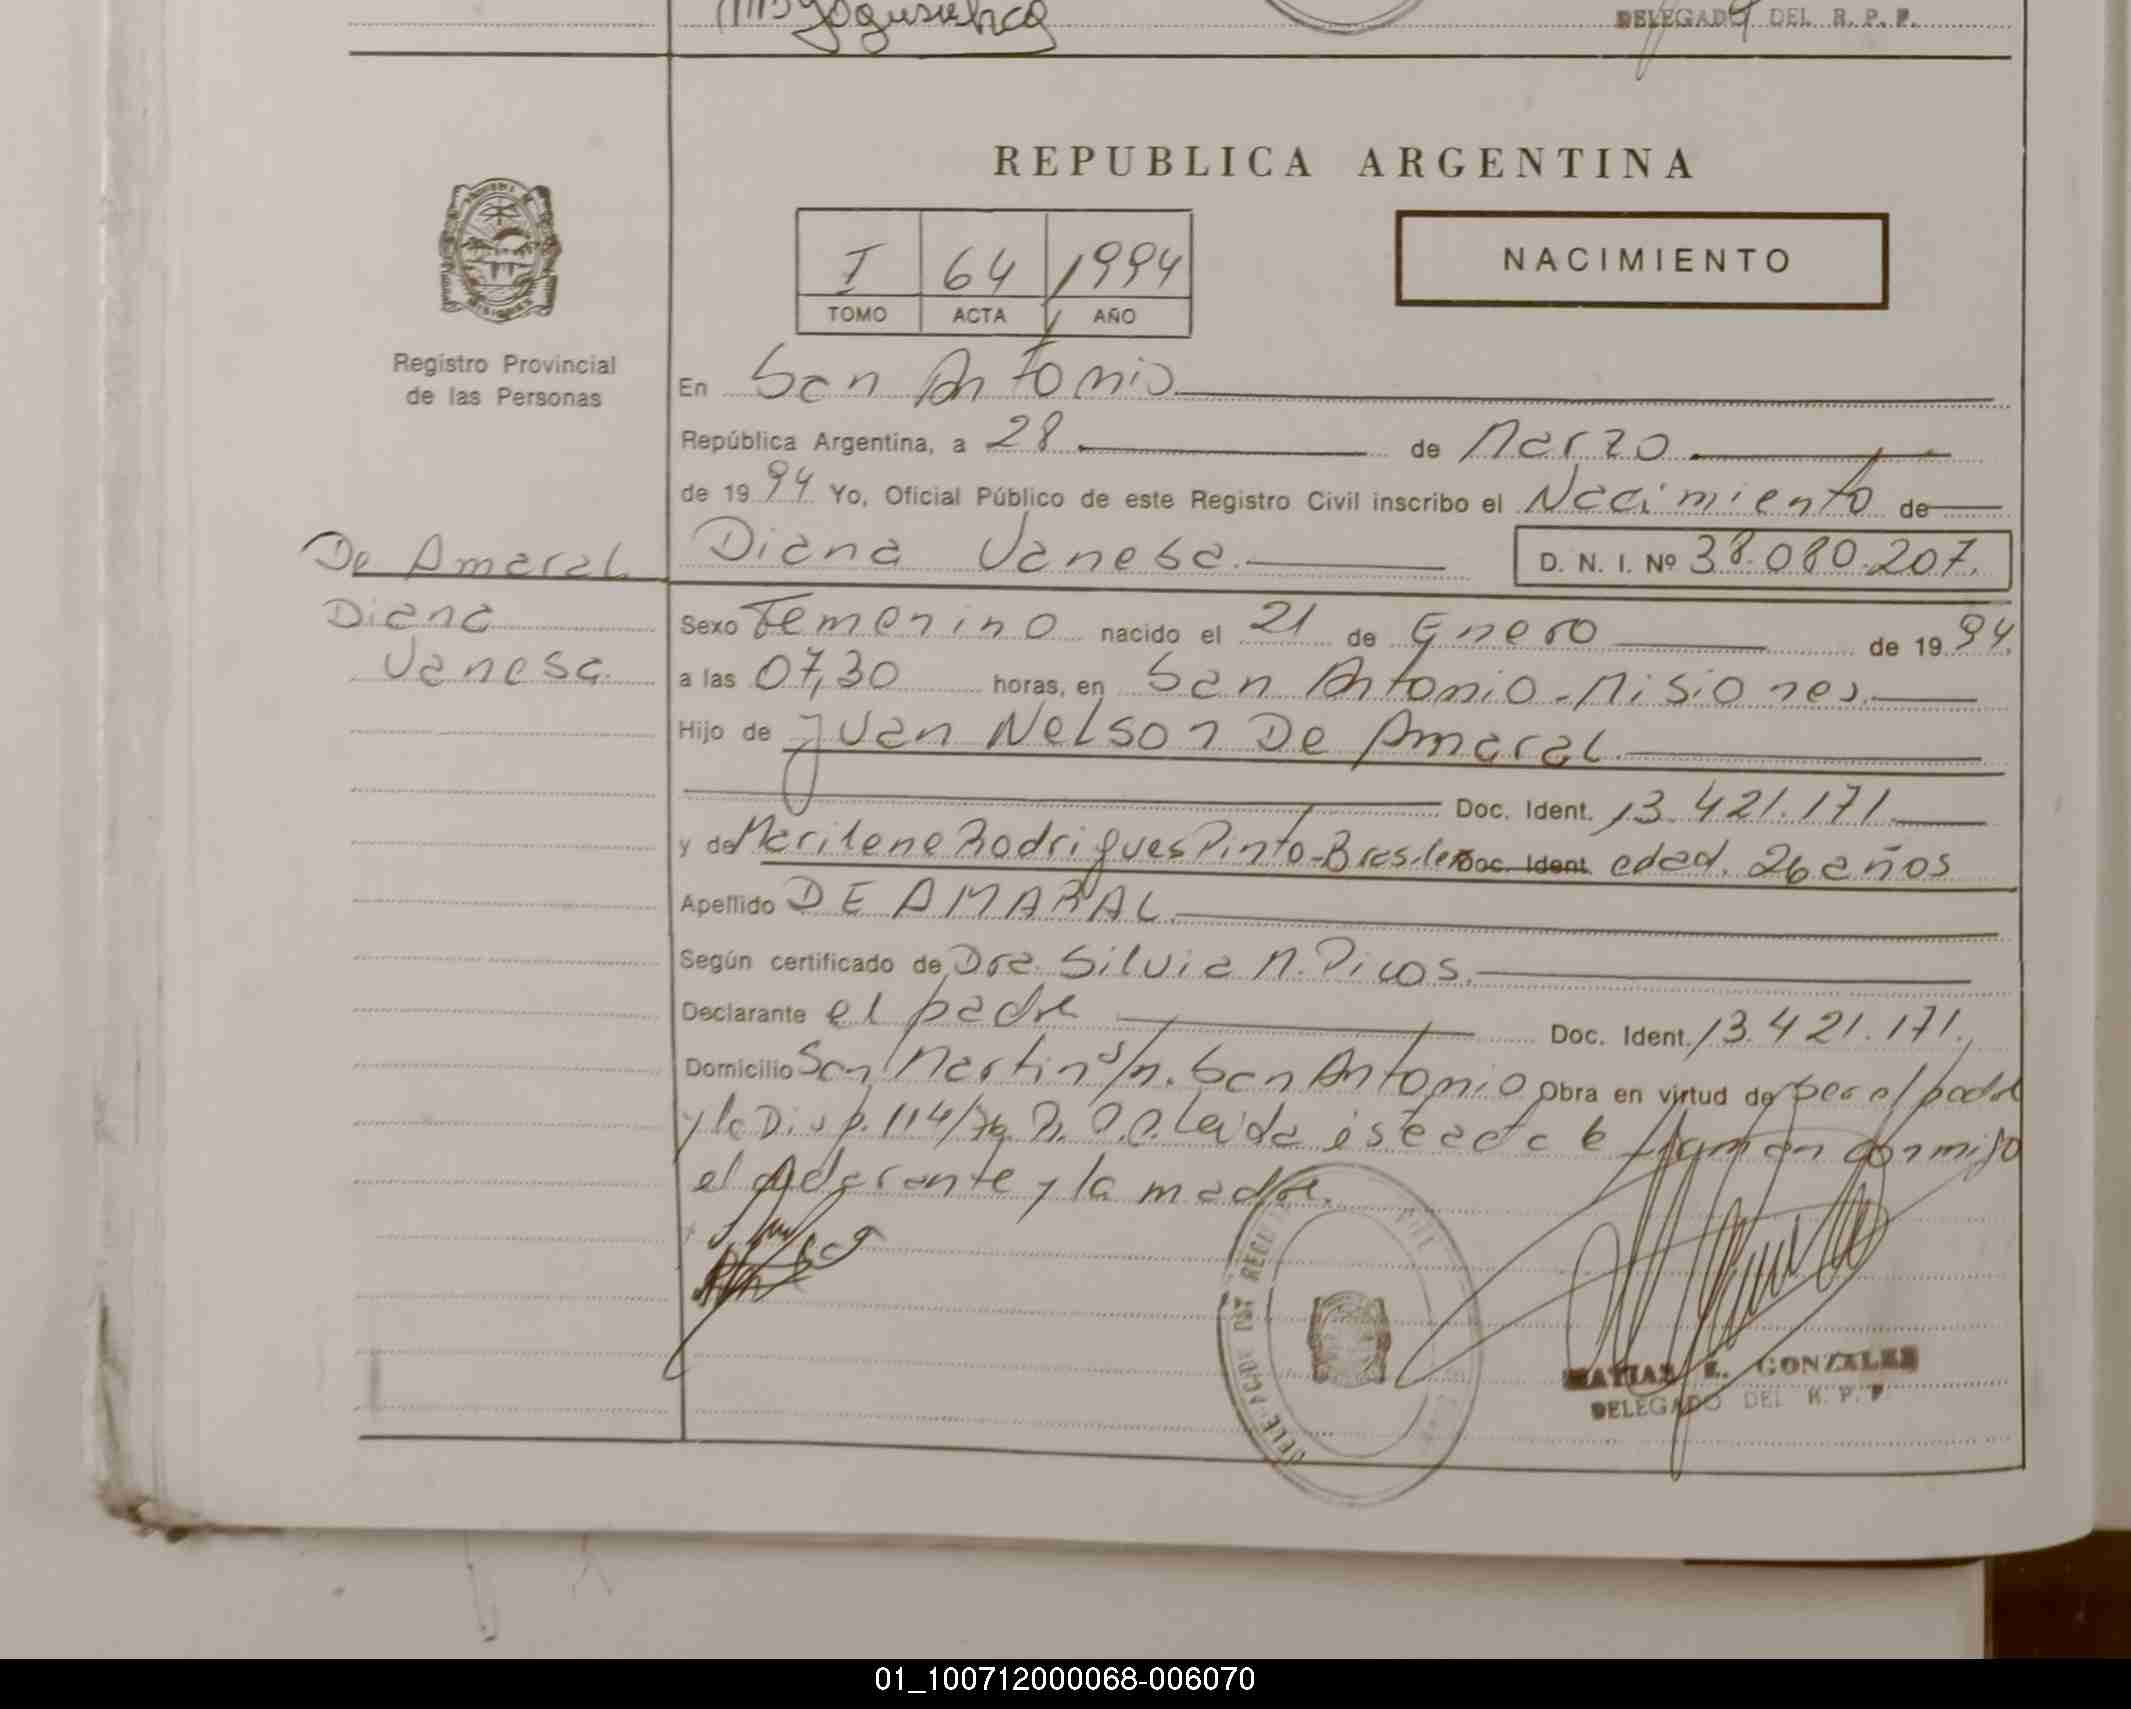 DELEGADO DEL R. P. P.
REPUBLICA ARGENTINA
I 64 1994
TOMO ACTA AÑO
NACIMIENTO
Registro Provincial
de las Personas
En San Antonio
República Argentina, a 28 de Marzo
de 1994 Yo, Oficial Público de este Registro Civil inscribo el Nacimiento de
De Amaral
Diana
Vanesa
Diana Vanesa. D. N. I. Nº 38.080.207.
Sexo Femenino nacido el 21 de Enero de 1994.
a las 07,30 horas, en San Antonio - Misiones.
Hijo de Juan Nelson De Amaral
Doc. Ident. 13.421.171.
y de Marilene Rodrigues Pinto - Brasilera Doc. Ident. edad. 26 años
Apellido DE AMARAL
Según certificado de Dra. Silvia N. Picos.
Declarante el padre Doc. Ident. 13.421.171.
Domicilio San Martin s/n. San Antonio Obra en virtud de ser el padre
y la Disp. 114/ Leida es acta la firman conmigo
el declarante y la madre.
MATIAS E. GONZALES
DELEGADO DEL R. P. P
01_100712000068-006070